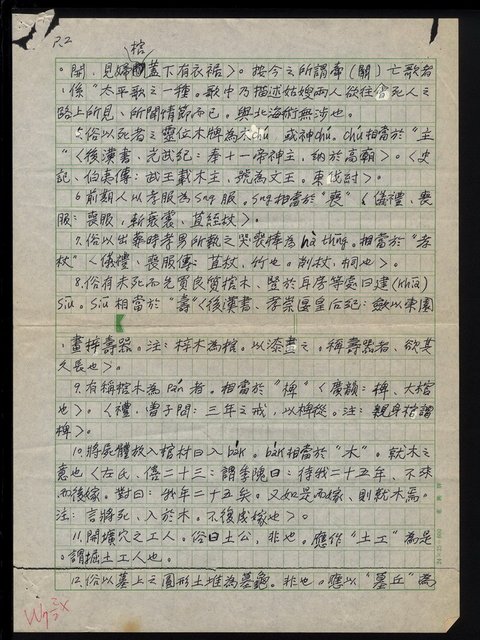 P.2
棺
。開,見婦蓋下有衣裾>。按今之所謂牽(關)亡歌者
,係“太平歌之一種。歌中乃描述姑嫂兩人欲往會死人之
路上所見、所聞情節而已。與北海術無涉也。
5.俗以死者之靈位木牌為木chú 或神chú。chú相當於“主
”<後漢書、光武紀:奉十一帝神主,納於高廟>。<史
記、伯夷傳:武王載木主,號為文王。東伐紂>。
6.前期人以孝服為sng服。sng相當於“喪”<儀禮、喪
服:喪服,斬衰裳、苴絰杖>。
7.俗以出葬時孝男所執之哭喪棒為hà thn̄g。相當於“孝
杖”<儀禮、喪服傳:苴杖、竹也。削杖、桐也>。
8.俗有未死不先買良質棺木、豎於耳房等處曰建(khiā)
Siū。Siū相當於“壽”<後漢書、孝崇匽皇后紀:斂以東園
,畫梓壽器。注:梓木為棺。以漆畫之。稱壽器者、欲其
久長也>。
9.有稱棺木為pán者。相當於“椑”<廣韻:椑、大棺
也>。<禮,曾子問:三年之戒,以椑從。注:親身棺謂
椑>。
10.將屍體放入棺材曰入ba̍k。ba̍k相當於“木”。就木之
意也<左氏、僖二十三:謂季隗曰:待我二十五年、不來
而後嫁。對曰:我年二十五矣。又如是而嫁、則就木焉。
注:言將死、入於木。不復成嫁也>。
11.開壙穴之工人。俗曰土公,非也。應作“土工”為是
。謂掘土工人也。
12.俗以墓上之圓形土堆為墓龜。非也。應以“墓丘”為